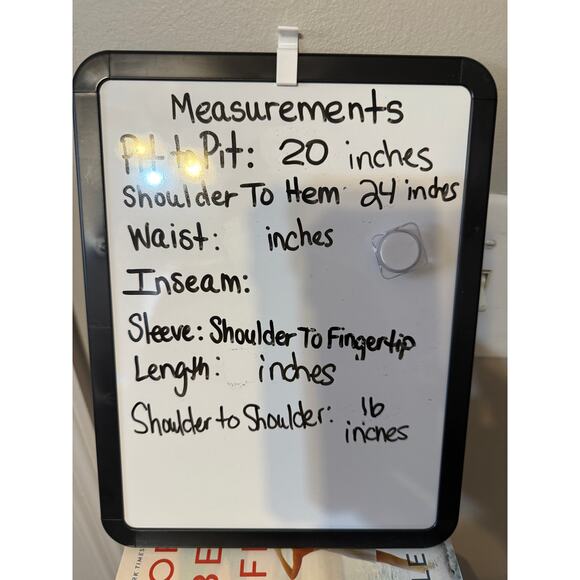 Measurements
Pit to Pit: 20 inches
Shoulder To Hem 24 inches
Waist: inches
Inseam:
Sleeve: Shoulder To Fingertip
Length: inches
Shoulder to Shoulder: 16
inches
RK TIMES